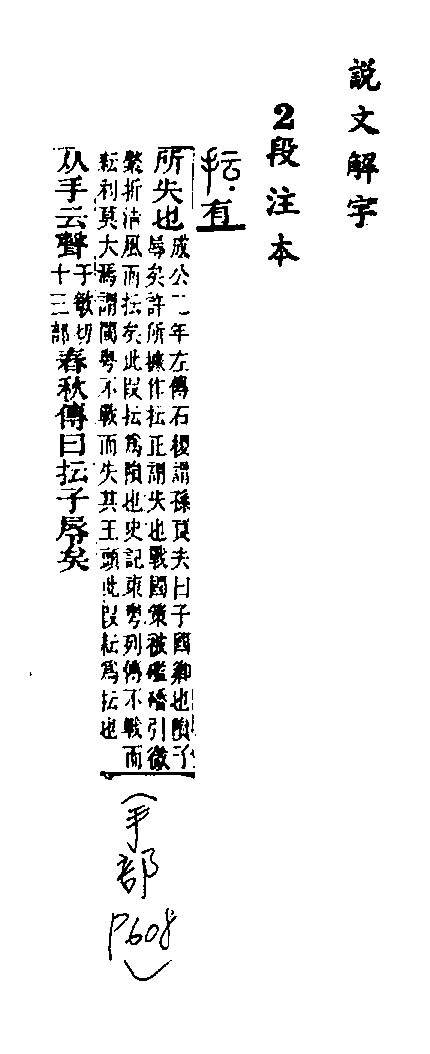 說文解字
2段注本
抎.有
所失也成公二年左傳石稷謂孫良夫曰子國卿也隕子
辱矣許所據作抎正謂失也戰國策被礛磻引微
繳折清風而抎矣此叚抎爲隕也史記東粤列傳不戰而
耘利莫大焉謂閩粤不戰而失其王頭此叚耘爲抎也
从手云聲于敏切十三部春秋傳曰抎子辱矣
(手部
P608)